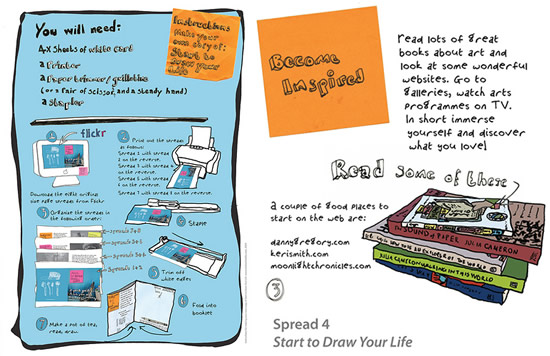 You will need:
4x Sheets of white card
a Printer
a Paper trimmer/guillotine
(or a Pair of scissors and a steady hand)
a Stapler
Instructions
Make your
own copy of:
Start to
Draw your
Life
flickr
Print out the spreads
as follows:
Spread 1 with spread
2 on the reverse.
Spread 3 with spread 4
on the reverse.
Spread 5 with spread
6 on the reverse.
Spread 7 with spread 8 on the reverse.
Download the eight
size spreads from Flickr
Organise the spreads
in the following order:
Staple
Trim off
white edges
Fold into
booklet
Make a pot of tea,
read, draw
Become
Inspired
Read lots of great
books about art and
look at some wonderful
websites. Go to
galleries, watch arts
programmes on TV.
In short immerse
yourself and discover
what you love!
Read some of these
a couple of good places to
start on the web are:
dannygregory.com
kerismith.com
moonlightchronicles.com
SOUND of PAPER JULIA CAMERON
JULIA CAMERON WALKING IN THIS WORLD
3
Spread 4
Start to Draw Your Life